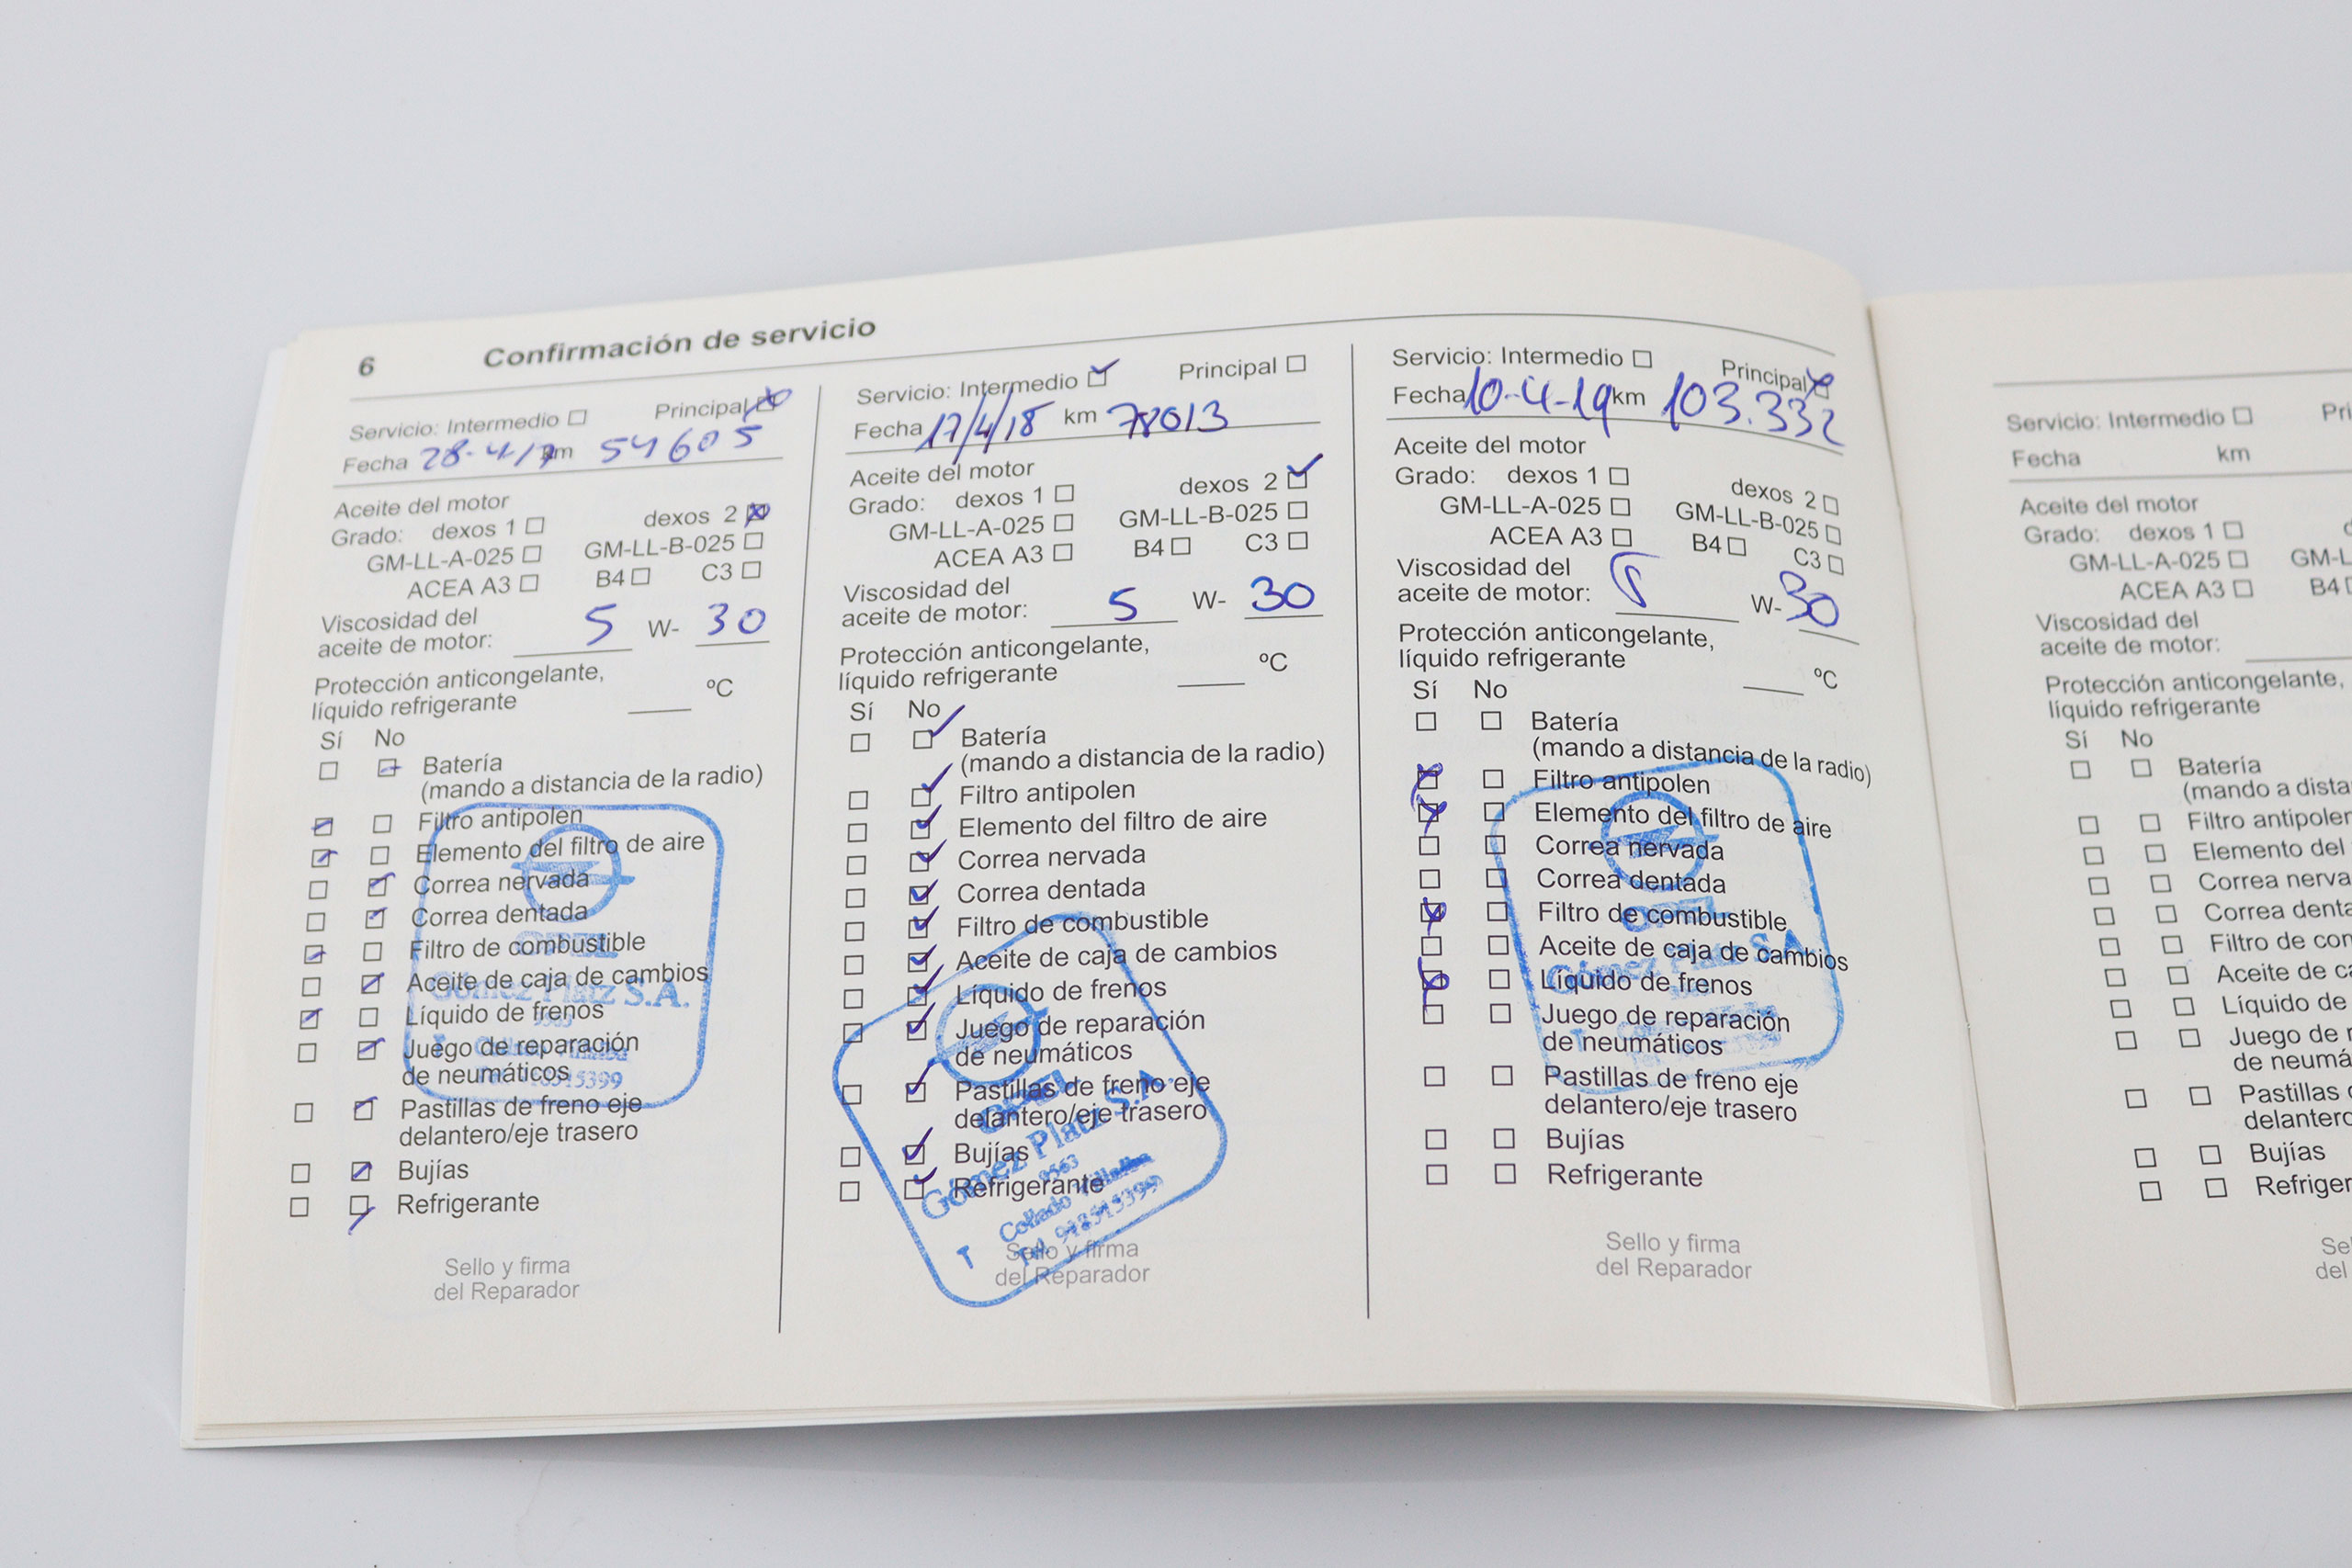 6 Confirmación de servicio
Servicio: Intermedio Principal
Fecha 28-4/17 km 54605
Aceite del motor
Grado: dexos 1 dexos 2
GM-LL-A-025 GM-LL-B-025
ACEA A3 B4 C3
Viscosidad del
aceite de motor: 5 W- 30
Protección anticongelante,
líquido refrigerante ºC
Sí No
Batería
(mando a distancia de la radio)
Filtro antipolen
Elemento del filtro de aire
Correa nervada
Correa dentada
Filtro de combustible
Aceite de caja de cambios
Líquido de frenos
Juego de reparación
de neumáticos
Pastillas de freno eje
delantero/eje trasero
Bujías
Refrigerante
OPEL
Gómez Platz S.A.
Sello y firma
del Reparador
Servicio: Intermedio Principal
Fecha 17/4/18 km 78013
Aceite del motor
Grado: dexos 1 dexos 2
GM-LL-A-025 GM-LL-B-025
ACEA A3 B4 C3
Viscosidad del
aceite de motor: 5 W- 30
Protección anticongelante,
líquido refrigerante ºC
Sí No
Batería
(mando a distancia de la radio)
Filtro antipolen
Elemento del filtro de aire
Correa nervada
Correa dentada
Filtro de combustible
Aceite de caja de cambios
Líquido de frenos
Juego de reparación
de neumáticos
Pastillas de freno eje
delantero/eje trasero
Bujías
Refrigerante
OPEL
Gómez Platz S.A.
9563
Collado Villalba
Tel. 918515399
Sello y firma
del Reparador
Servicio: Intermedio Principal
Fecha 10-4-19 km 103.332
Aceite del motor
Grado: dexos 1 dexos 2
GM-LL-A-025 GM-LL-B-025
ACEA A3 B4 C3
Viscosidad del
aceite de motor: 5 W- 30
Protección anticongelante,
líquido refrigerante ºC
Sí No
Batería
(mando a distancia de la radio)
Filtro antipolen
Elemento del filtro de aire
Correa nervada
Correa dentada
Filtro de combustible
Aceite de caja de cambios
Líquido de frenos
Juego de reparación
de neumáticos
Pastillas de freno eje
delantero/eje trasero
Bujías
Refrigerante
OPEL
Gómez Platz S.A.
Sello y firma
del Reparador
Servicio: Intermedio
Fecha km
Aceite del motor
Grado: dexos 1
GM-LL-A-025
ACEA A3 B4
Viscosidad del
aceite de motor:
Protección anticongelante,
líquido refrigerante
Sí No
Batería
(mando a
Filtro antipolen
Elemento del
Correa
Correa
Filtro de
Aceite de
Líquido de
Juego de
de
Pastillas
Bujías